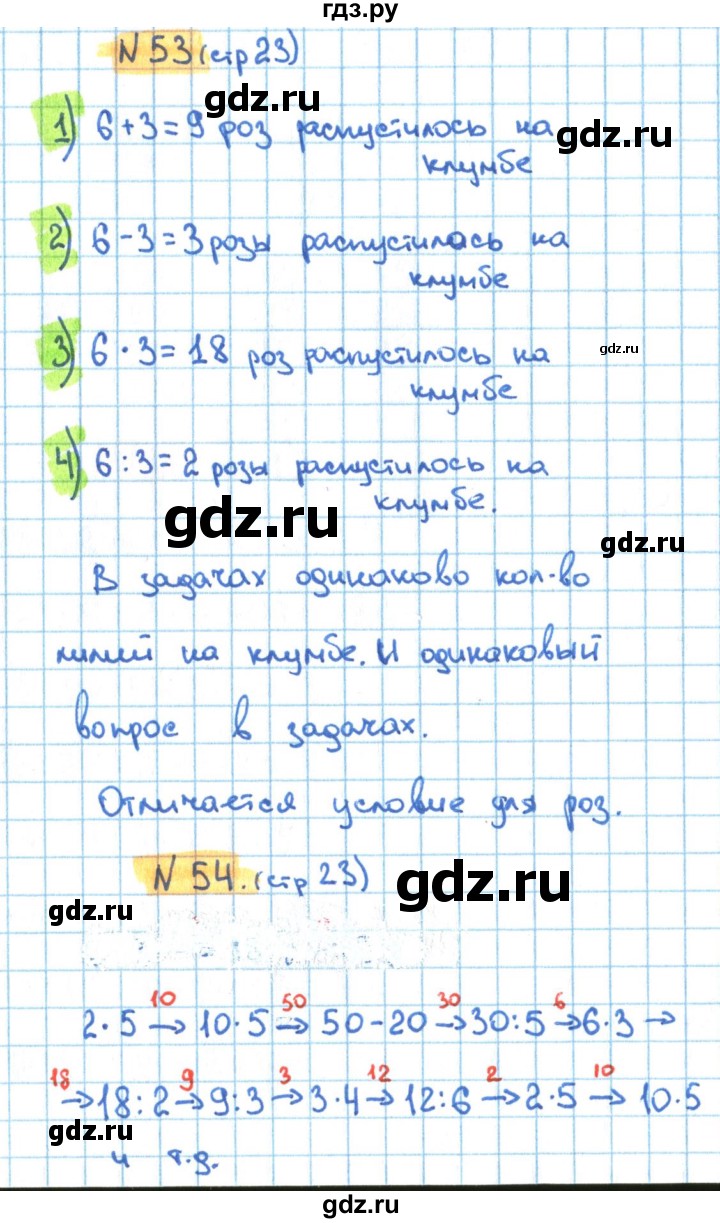 гдз.ру
N 53 (стр 23)
gdz.ru
1) 6 + 3 = 9 роз распустилось на
gdz.ru
клумбе
2) 6 - 3 = 3 розы распустилась на
клумбе
3) 6 · 3 = 18 роз распустилось на
gdz.ru
клумбе
4) 6 : 3 = 2 розы распустилось на
клумбе.
gdz.ru
gdz.ru
В задачах одинаково кол-во
лилий на клумбе. И одинаковый
вопрос в задачах.
Отличается условие для роз.
N 54. (стр 23)
gdz.ru
gdz.ru
10 50 30 6
2 · 5 → 10 · 5 → 50 - 20 → 30 : 5 → 6 · 3 →
18 9 3 12 2 10
→ 18 : 2 → 9 : 3 → 3 · 4 → 12 : 6 → 2 · 5 → 10 · 5
gdz.ru
и т.д.
gdz.ru